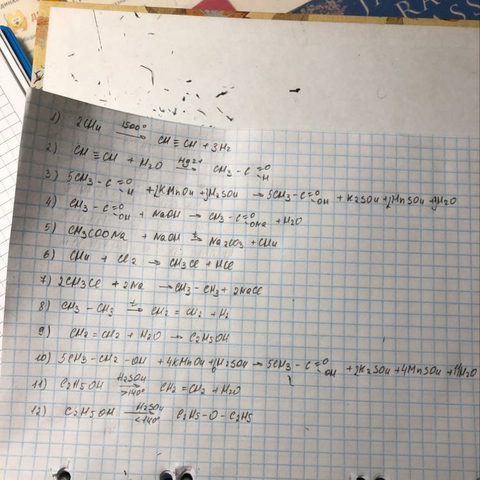 1) 2CH4 1500° → CH≡CH + 3H2
2) CH≡CH + H2O Hg2+ → CH3-C=O H
3) 5CH3-C=O H + 2KMnO4 + 3H2SO4 → 5CH3-C=O OH + K2SO4 + 2MnSO4 + 3H2O
4) CH3-C=O OH + NaOH → CH3-C=O ONa + H2O
5) CH3COONa + NaOH t → Na2CO3 + CH4
6) CH4 + Cl2 → CH3Cl + HCl
7) 2CH3Cl + 2Na → CH3-CH3 + 2NaCl
8) CH3-CH3 t → CH2=CH2 + H2
9) CH2=CH2 + H2O → C2H5OH
10) 5CH3-CH2-OH + 4KMnO4 + 6H2SO4 → 5CH3-C=O OH + 2K2SO4 + 4MnSO4 + 11H2O
11) C2H5OH H2SO4 >140° → CH2=CH2 + H2O
12) C2H5OH H2SO4 <140° → C2H5-O-C2H5